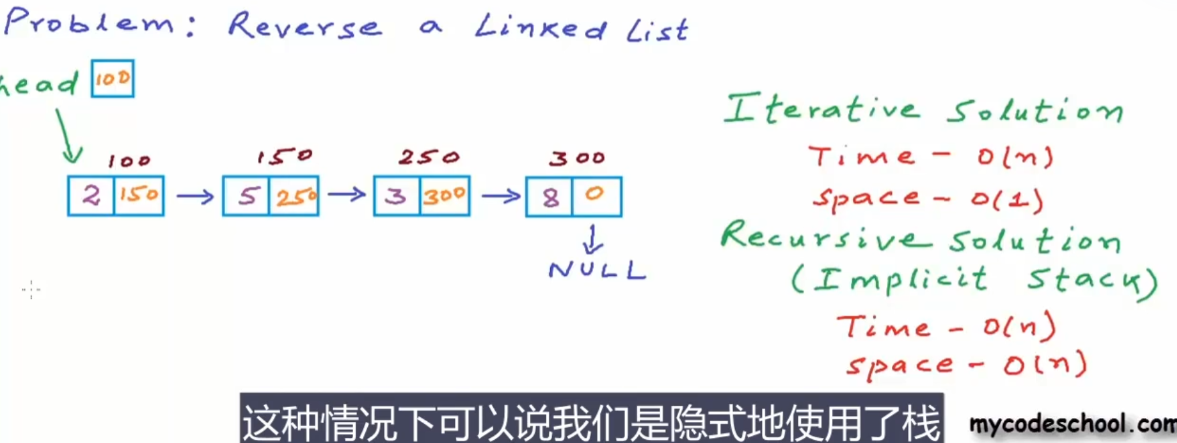 Problem: Reverse a Linked List
head 100
100 150 250 300
2 150 5 250 3 300 8 0
NULL
Iterative Solution
Time - O(n)
Space - O(1)
Recursive Solution
(Implicit Stack)
Time - O(n)
Space - O(n)
这种情况下可以说我们是隐式地使用了栈
mycodeschool.com